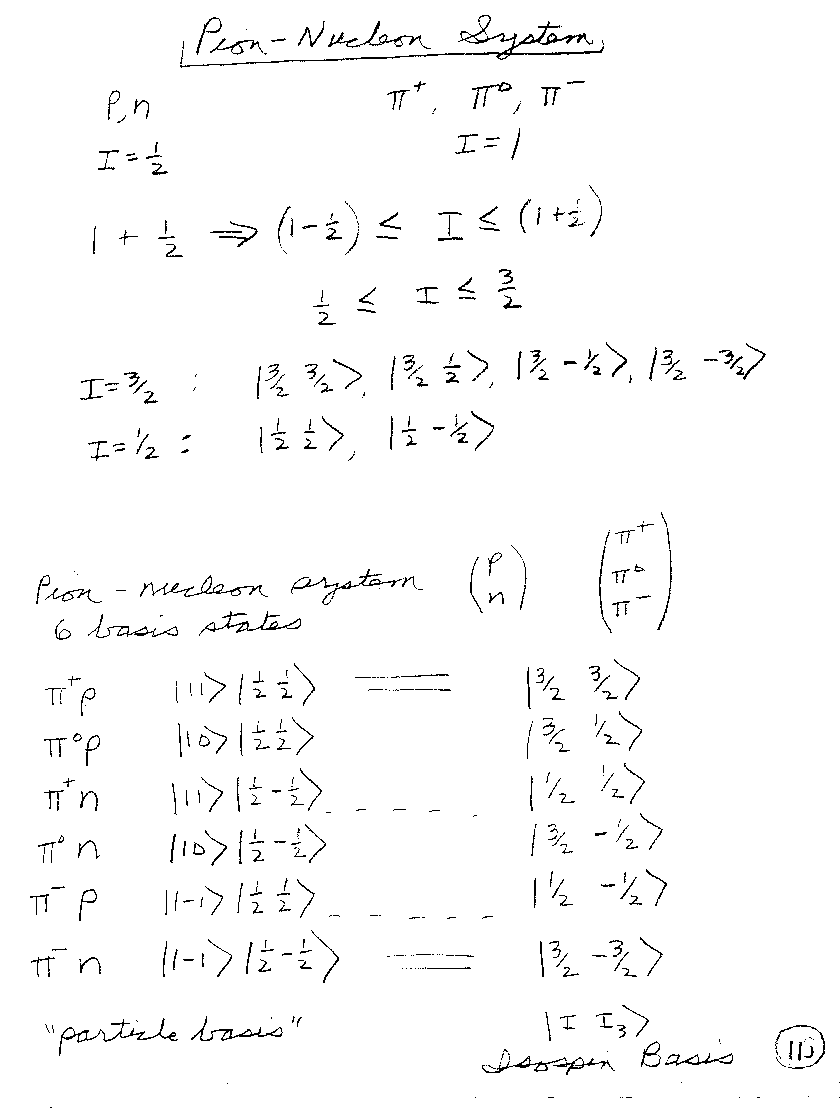 Pion-Nucleon System
P, n π⁺, π⁰, π⁻
I = ½ I = 1
1 + ½ ⇒ (1-½) ≤ I ≤ (1+½)
½ ≤ I ≤ 3/2
I = 3/2 : |3/2 3/2>, |3/2 ½>, |3/2 -½>, |3/2 -3/2>
I = ½ : |½ ½>, |½ -½>
Pion-nucleon system (P n) (π⁺ π⁰ π⁻)
6 basis states
π⁺p |11>|½ ½> ═══ |3/2 3/2>
π⁰p |10>|½ ½> |3/2 ½>
π⁺n |11>|½ -½> - - - - - |½ ½>
π⁰n |10>|½ -½> |3/2 -½>
π⁻p |1-1>|½ ½> - - - - - |½ -½>
π⁻n |1-1>|½ -½> ═══ |3/2 -3/2>
"particle basis" |I I₃>
Isospin Basis
110